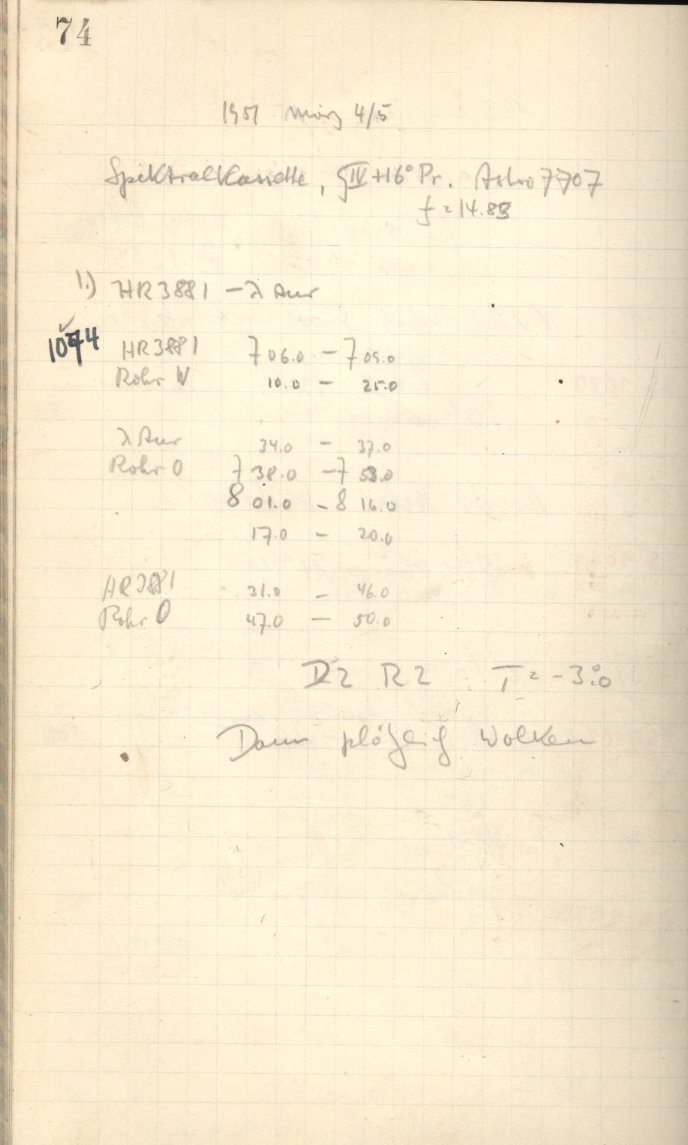 74
1951 März 4/5
Spektralkassette, IV+16° Pr. Astro 7707
f=14.83
1.) HR3881 – λ Aur
1074 HR3881 7 06.0 – 7 09.0
Rohr W 10.0 – 25.0
λ Aur 34.0 – 37.0
Rohr O 7 38.0 – 7 53.0
8 01.0 – 8 16.0
17.0 – 20.0
HR3881 31.0 – 46.0
Rohr O 47.0 – 50.0
D2 R2 T = -3.°0
Dann plötzlich Wolken